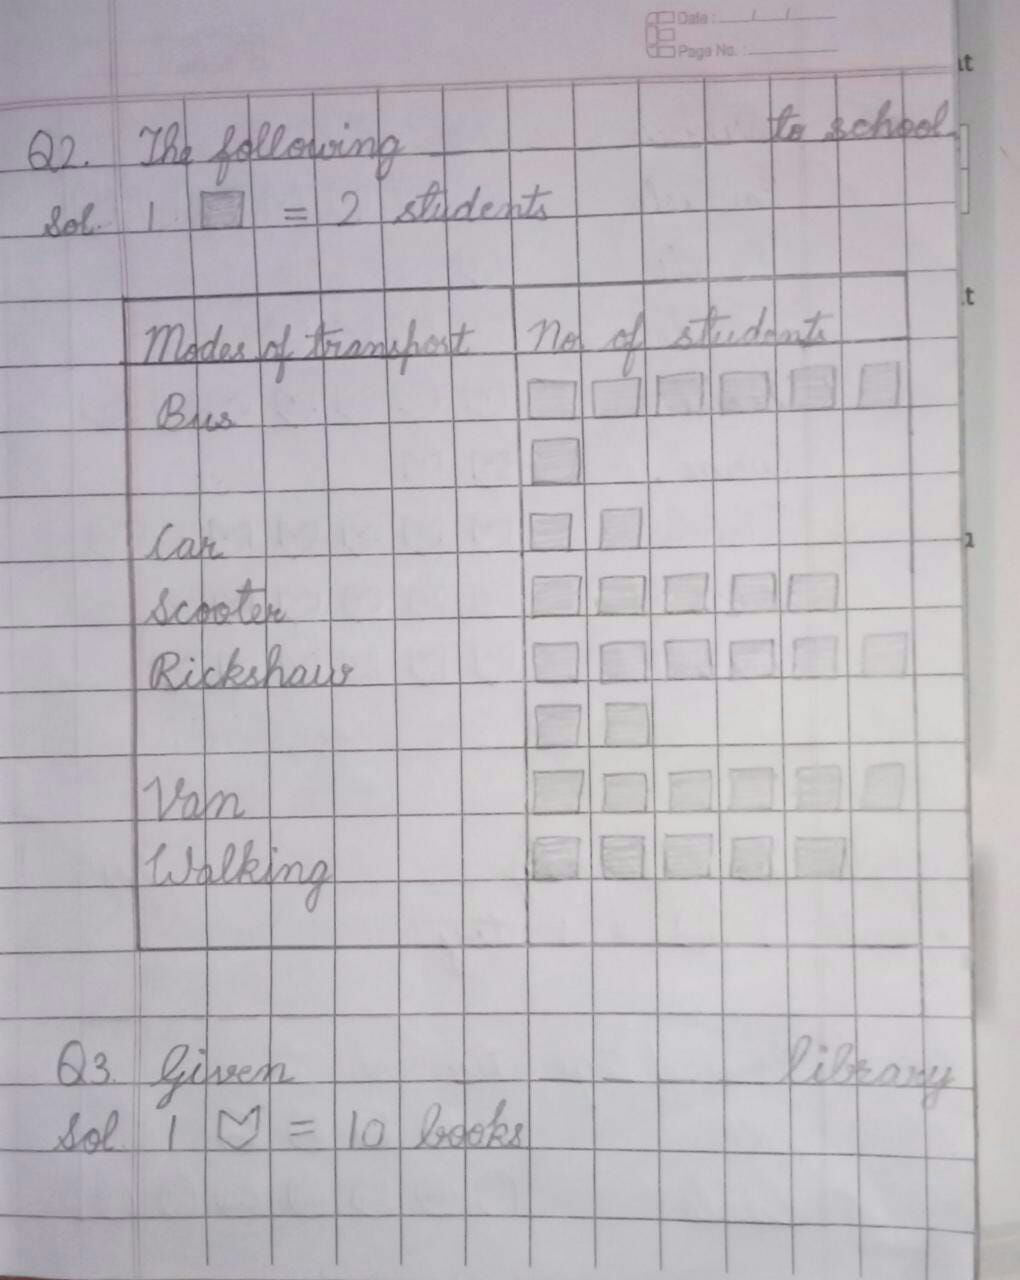 Date :
Page No. :
Q2. The following to school
Sol. 1 = 2 students
Modes of transport No of students
Bus
Car
Scooter
Rickshaw
Van
Walking
Q3. Given library
Sol 1 = 10 books
t
t
2